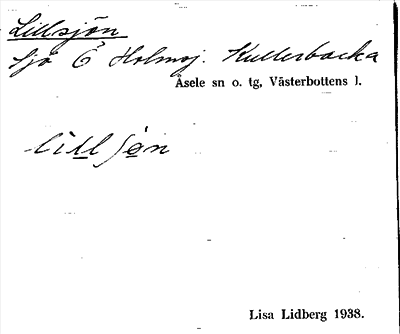 Lillsjön
Sjö Ö Holmsj. Kullerbacka
Åsele sn o. tg, Västerbottens l.
lillsjøn
Lisa Lidberg 1938.